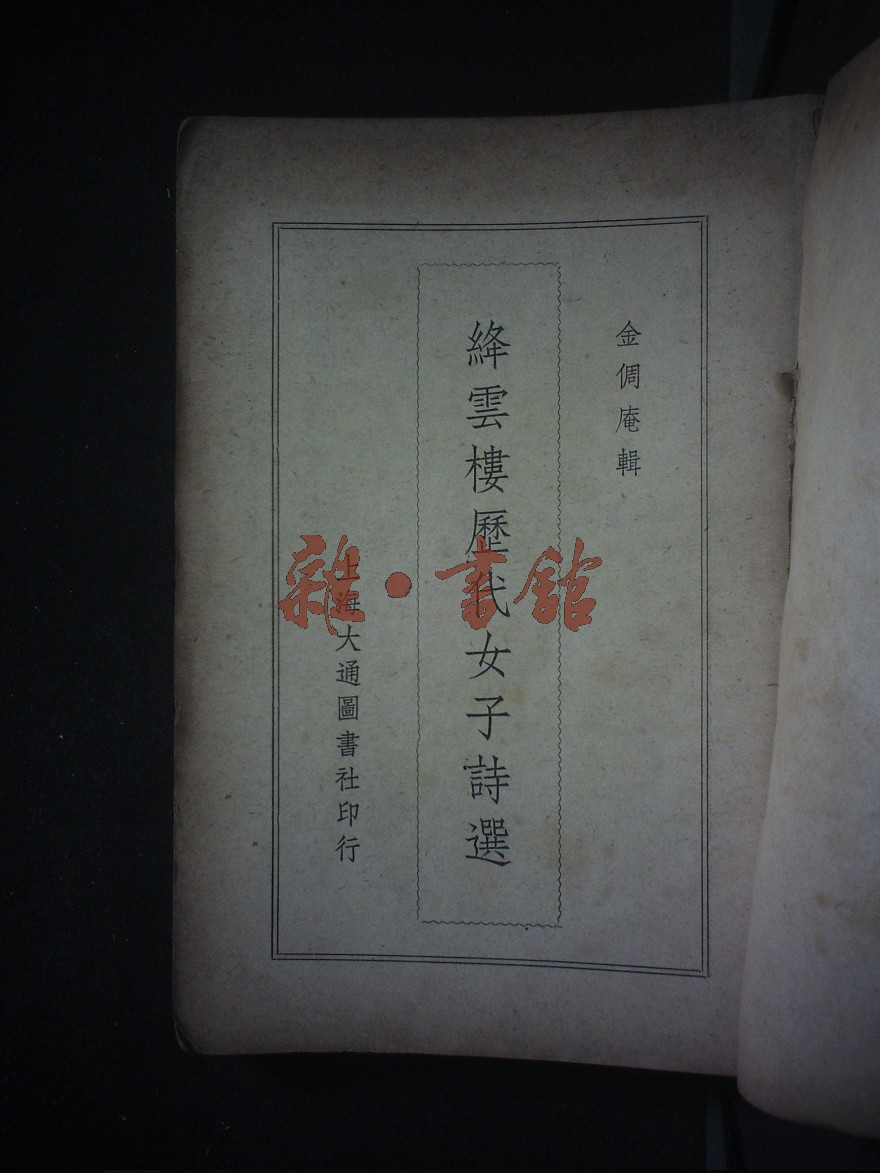 金倜庵輯
絳雲樓歷代女子詩選
上海大通圖書社印行
雜·書館